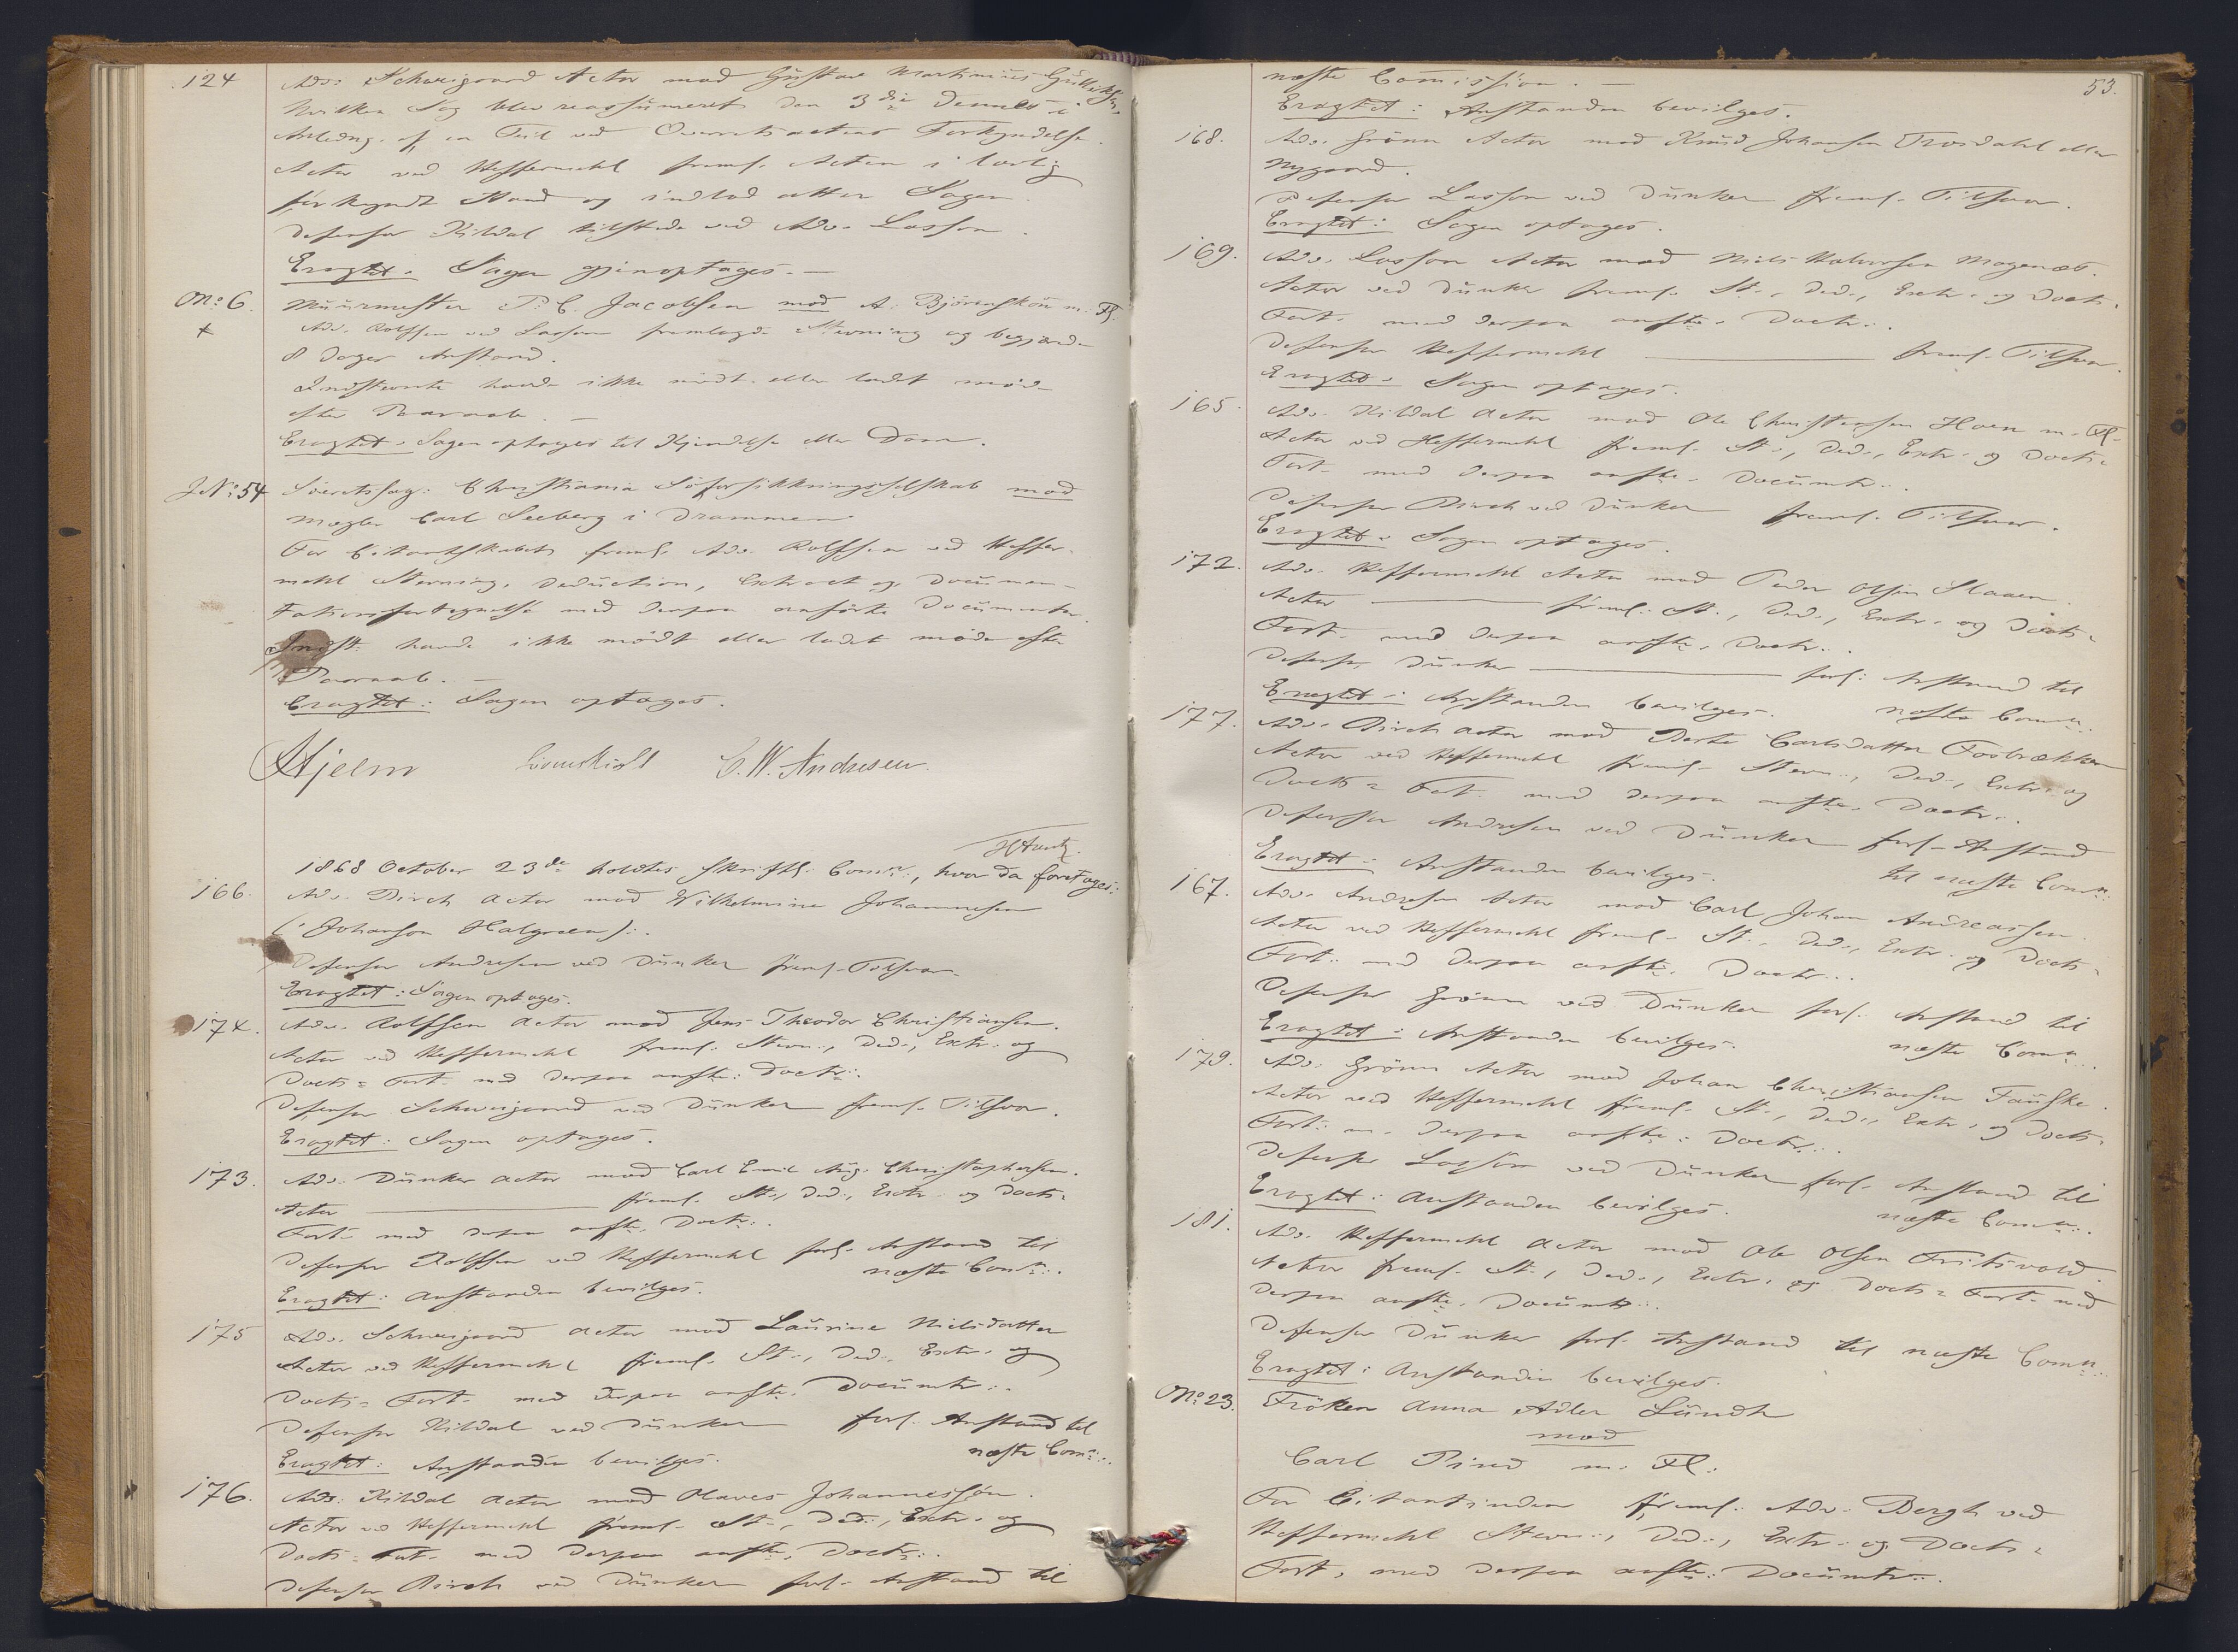 124 Adv: Schweigaard Actor mod Gustav Martinius Gulliksen,
hvilken Sag blev reassumeret den 3die dennes i
Anledng. af en Feil ved Overretsactens Forkyndelse.
Actor ved Heffermehl freml. Acten i lovlig
forkyndt Stand og indlod atter Sagen.
Defensor Kildal tilstede ved Adv. Lasson.
Eragtet: Sagen gjenoptages. —
No 6. Muurmester P. C. Jacobsen mod A. Björnskau m. Fl.
Adv. Rolffsen ved Lasson fremlagde Stevning og begjærede
8 Dages Anstand.
Indstevnte havde ikke mödt eller ladet möde
efter Paaraab. —
Eragtet: Sagen optages til Kjendelse eller Dom.
J No: 54 Söeretssag: Christiania Söforsikkringsselskab mod
Mægler Carl Seeberg i Drammen
For Citantskabet freml. Adv. Rolffsen ved Heffer-
mehl Stevning, Deduction, Extract og Documen-
tationsfortegnelse med derpaa anförte Documenter.
Indst. havde ikke mödt eller ladet möde efter
Paaraab. —
Eragtet: Sagen optages.
Hjelm Lövenskiold C. W. Andresen
1868 October 23de holdtes skriftl. Comn:, hvor da foretoges:
166. Adv. Birch Actor mod Wilhelmine Johannesen
(: Johanson Halgreen):.
Defensor Andresen ved Dunker freml. Tilsvar.
Eragtet: Sagen optages.
174. Adv. Rolffsen Actor mod Jens Theodor Christiansen.
Actor ved Heffermehl freml. Stevn:, Ded., Extr. og
Docts= Fort. med derpaa anfte: Doctr:.
Defensor Schweigaard ved Dunker freml. Tilsvar.
Eragtet: Sagen optages.
173. Adv. Dunker Actor mod Carl Emil Aug. Christophersen.
Actor — freml. St:, Ded., Extr. og Docts=
Fort. med derpaa anfte. Doctr:.
Defensor Rolffsen ved Heffermehl forl. Anstand til
næste Comn:.
Eragtet: Anstanden bevilges.
175 Adv. Schweigaard Actor mod Laurine Nielsdatter
Actor ved Heffermehl freml. St:, Ded., Extr. og
Docts= Fort. med derpaa anfte. Documtr:.
Defensor Kildal ved Dunker forl. Anstand til
næste Comn:.
Eragtet: Anstanden bevilges.
176. Adv. Kildal Actor mod Olaves Johannessön.
Actor ved Heffermehl freml. St:, Ded., Extr. og
Docts= Fort. med derpaa anfte. Doctr:.
Defensor Birch ved Dunker forl. Anstand til
53.
næste Comission. —
Eragtet: Anstanden bevilges.
168. Adv. Grönn Actor mod Knud Johansen Trosdahl eller
Nygaard.
Defensor Lasson ved Dunker freml. Tilsvar.
Eragtet: Sagen optages.
169. Adv. Lasson Actor mod Niels Halvorsen
Actor ved Dunker freml. St:, Ded., Extr. og Docts=
Fort. med derpaa anfte. Doctr:.
Defensor Heffermehl — freml. Tilsvar.
Eragtet: Sagen optages.
165. Adv. Kildal Actor mod Ole Christensen Hoen m. Fl.
Actor ved Heffermehl freml. St:, Ded., Extr. og Docts=
Fort. med derpaa anfte. Documtr:.
Defensor Birch ved Dunker freml. Tilsvar.
Eragtet: Sagen optages.
172. Adv. Heffermehl Actor mod Peder Olsen Slaaen.
Actor — freml: St., Ded., Extr. og Docts=
Fort. med derpaa anfte. Doctr:.
Defensor Dunker — forl: Anstand til
næste Comn:.
Eragtet: Anstanden bevilges.
177. Adv. Birch Actor mod Berte Carlsdatter Fosbrækken
Actor ved Heffermehl freml. Stevn:, Ded., Extr. og
Docts= Fort. med derpaa anfte. Doctr:.
Defensor Andresen ved Dunker forl. Anstand
til næste Comn:.
Eragtet: Anstanden bevilges.
167. Adv. Andresen Actor mod Carl Johan Andreassen.
Actor ved Heffermehl freml. St., Ded., Extr. og Docts=
Fort: med derpaa anfte. Doctr:.
Defensor Grönn ved Dunker forl. Anstand til
næste Comn:.
Eragtet: Anstanden bevilges.
179. Adv. Grönn Actor mod Johan Christiansen Fauske.
Actor ved Heffermehl freml. St., Ded., Extr. og Docts=
Fort: m. derpaa anfte: Doctr:.
Defensor Lasson ved Dunker forl. Anstand til
næste Comn:.
Eragtet: Anstanden bevilges.
181. Adv. Heffermehl Actor mod Ole Olsen Fritsvold.
Actor freml. St., Ded., Extr. og Docts= Fort. med
derpaa anfte. Documtr:.
Defensor Dunker forl. Anstand til næste Comn:
Eragtet: Anstanden bevilges.
No 23. Fröken Anna Adler Lundh
mod
Carl Pind m. Fl:
For Citantinden freml. Adv. Bergh ved
Heffermehl Stevn:, Ded:, Extr: og Docts=
Fort, med derpaa anfte: Documtr:.